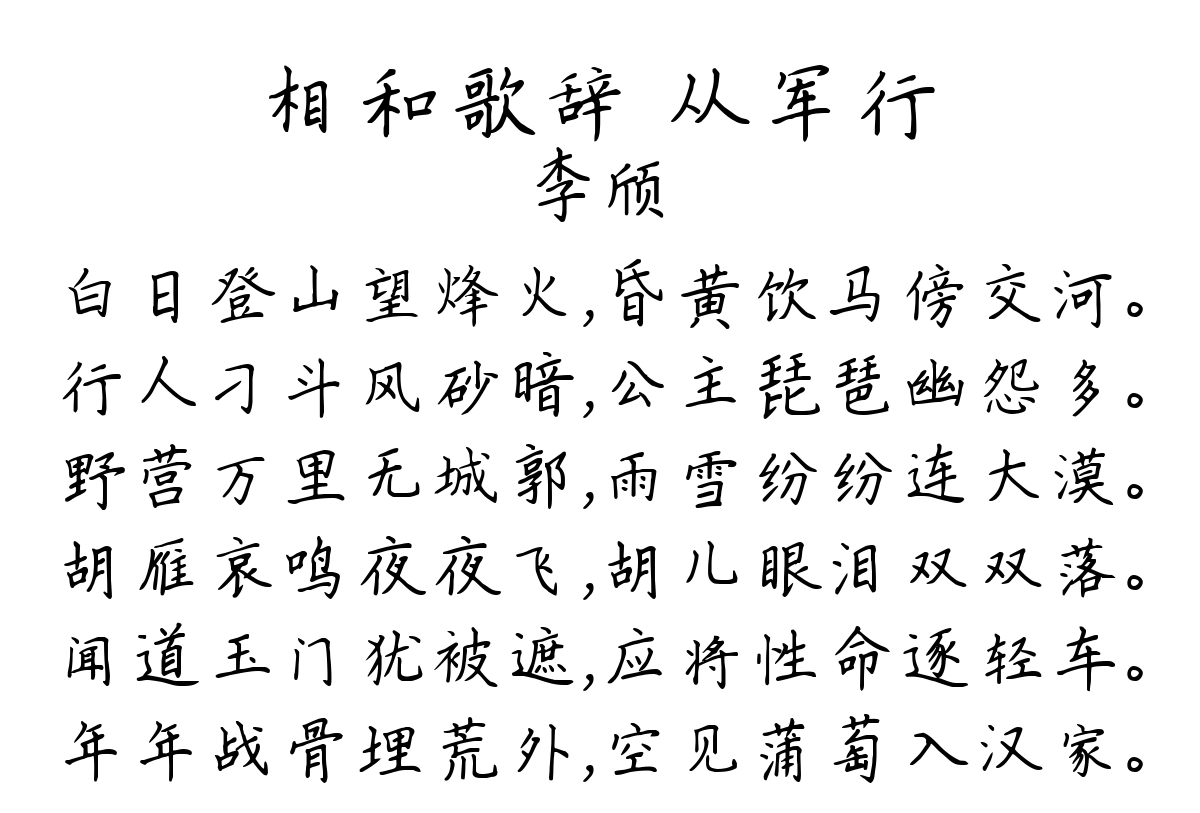 相和歌辞 从军行
李颀
白日登山望烽火,昏黄饮马傍交河。
行人刁斗风砂暗,公主琵琶幽怨多。
野营万里无城郭,雨雪纷纷连大漠。
胡雁哀鸣夜夜飞,胡儿眼泪双双落。
闻道玉门犹被遮,应将性命逐轻车。
年年战骨埋荒外,空见蒲萄入汉家。